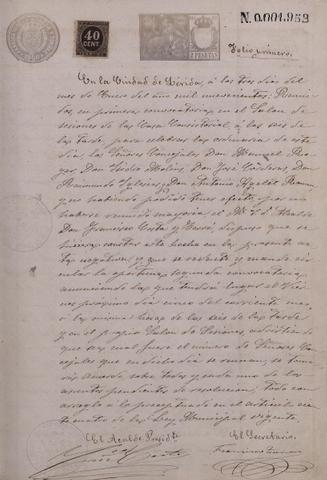 N. 0.001.953
40
CENT.
2 PESETAS
Folio primero.
En la Ciudad de Lérida, á los tres dias del
mes de Enero del año mil novecientos. Reuni-
dos en primera convocatoria, en el Salon de
sesiones de las Casa Consistorial, á las seis de
la tarde, para celebrar la ordinaria de este
dia los Señores Concejales Don Manuel
Don Pedro Molins, Don José Cárdenas, Don
Raimundo Iglesias, Don Antonio Agelet
y no habiendo podido tener efecto por no
haberse reunido mayoria, el M. I. S. Alcalde
Don Francisco Costa y dispuso que se
hiciera constar este hecho en la presente ac-
ta negativa, y que se redacte y mande cir-
cular la oportuna segunda convocatoria
anunciando las que tendrá lugar el Vier-
nes próximo dia cinco del corriente mes,
á la misma hora de las seis de la tarde
y en el propio Salon de Sesiones, advirtiendo
que sea cual fuere el número de Señores Con-
cejales que en dicho dia se reunan, se toma-
rá acuerdo sobre todos y cada uno de los
asuntos pendientes de resolucion; todo con
arreglo á lo preceptuado en el articulo
ciento cuatro de la Ley Municipal vigente.
El Alcalde Presidte
El Secretario.